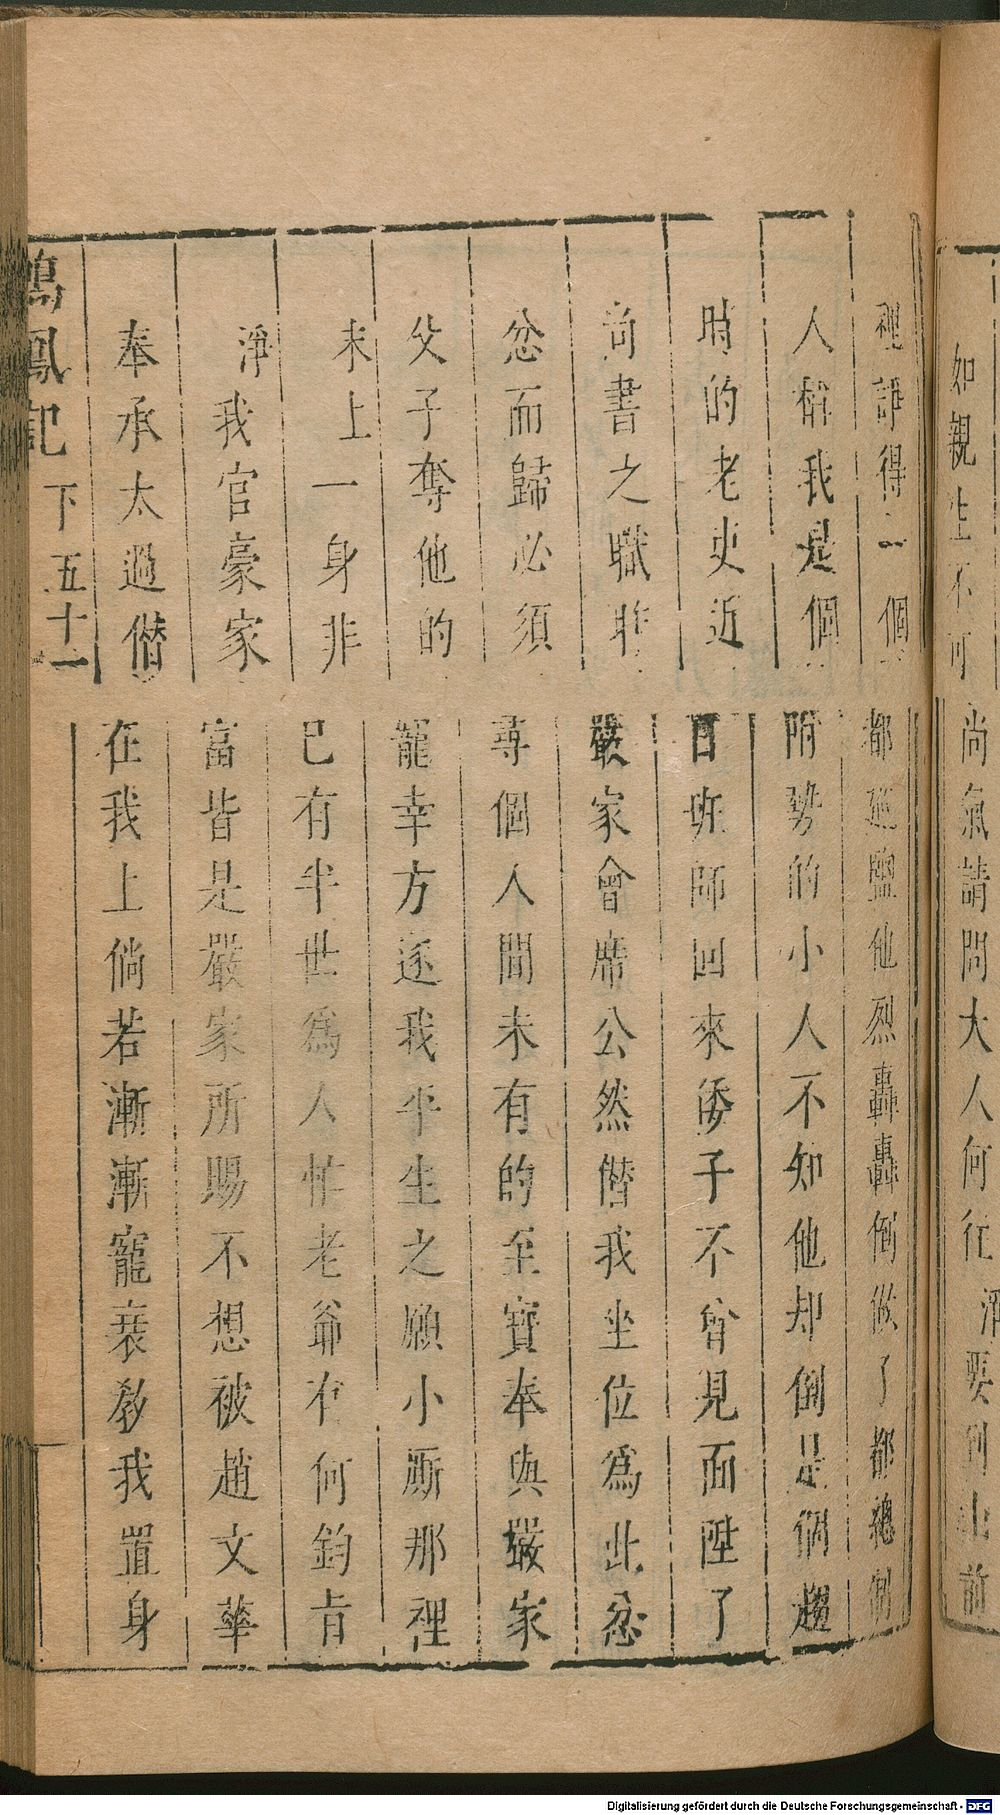 如親生不可尚氣請問大人何往
裡諍得一個都巡鹽他烈轟轟倒做了都總制
人糾我是個附勢的小人不知他却倒是個趨
時的老吏近日班師回來倭子不曾見面陞了
尚書之職昨嚴家會席公然僭我坐位為此忿
忿而歸必須尋個人間未有的至寶奉與嚴家
父子奪他的寵幸方遂我平生之願小厮那裡
末上一身非已有半世為人忙老爺有何鈞旨
淨我官豪家富皆是嚴家所賜不想被趙文華
奉承太過僭在我上倘若漸漸寵衰教我置身
鳴鳳記下五十一
Digitalisierung gefördert durch die Deutsche Forschungsgemeinschaft - DFG